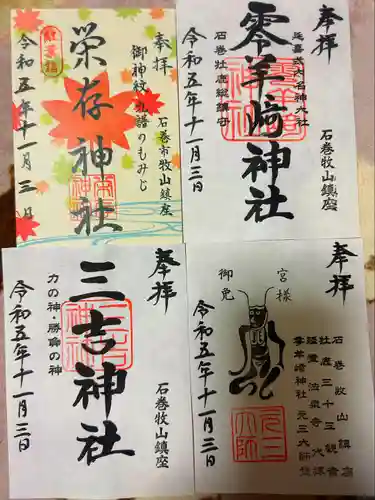 奉拝
御神紋・社譜のもみじ
石巻市牧山鎮座
栄存神社
令和五年十一月三日
奉拝
延喜式内名神大社
石巻牧山鎮座
零羊崎神社
石巻牡鹿総鎮守
令和五年十一月三日
奉拝
石巻牧山鎮座
三吉神社
力の神・勝負の神
令和五年十一月三日
奉拝
石巻牧山鎮座
牡鹿三十三観音
零羊崎神社 元三大師
宮様
御免
令和五年十一月三日
元三大師